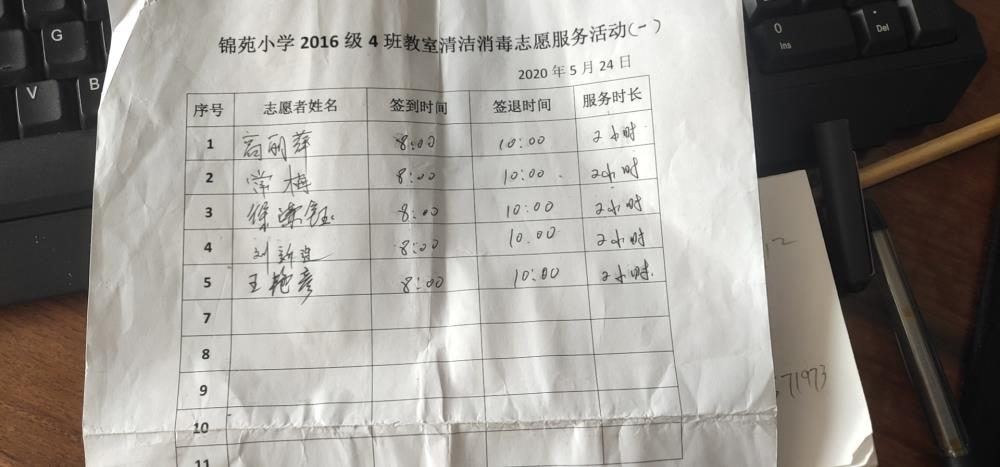 锦苑小学 2016 级 4 班教室清洁消毒志愿服务活动(一)
2020 年 5 月 24 日
序号 志愿者姓名 签到时间 签退时间 服务时长
1 高丽萍 8:00 10:00 2小时
2 常梅 8:00 10:00 2小时
3 8:00 10:00 2小时
4 8:00 10:00 2小时
5 王艳彦 8:00 10:00 2小时
7
8
9
10
11
G
V
B
0
Ins
Del
71973